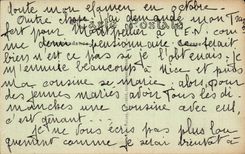 toute mon examen en octobre.
Outre chose j'ai demandé mon
fort pour Montpellier à l'E.N. com
me demi-pensionnaire ce serait
bien n'est ce pas si je l'obtenais. Je
m'ennuie beaucoup à Nice et puis
ma cousine se marie, alors pour
des jeunes mariés avoir tous les di
manches une cousine avec eux
c'est gênant...
Je ne vous écris pas plus lon
guement comme je serai bientôt à